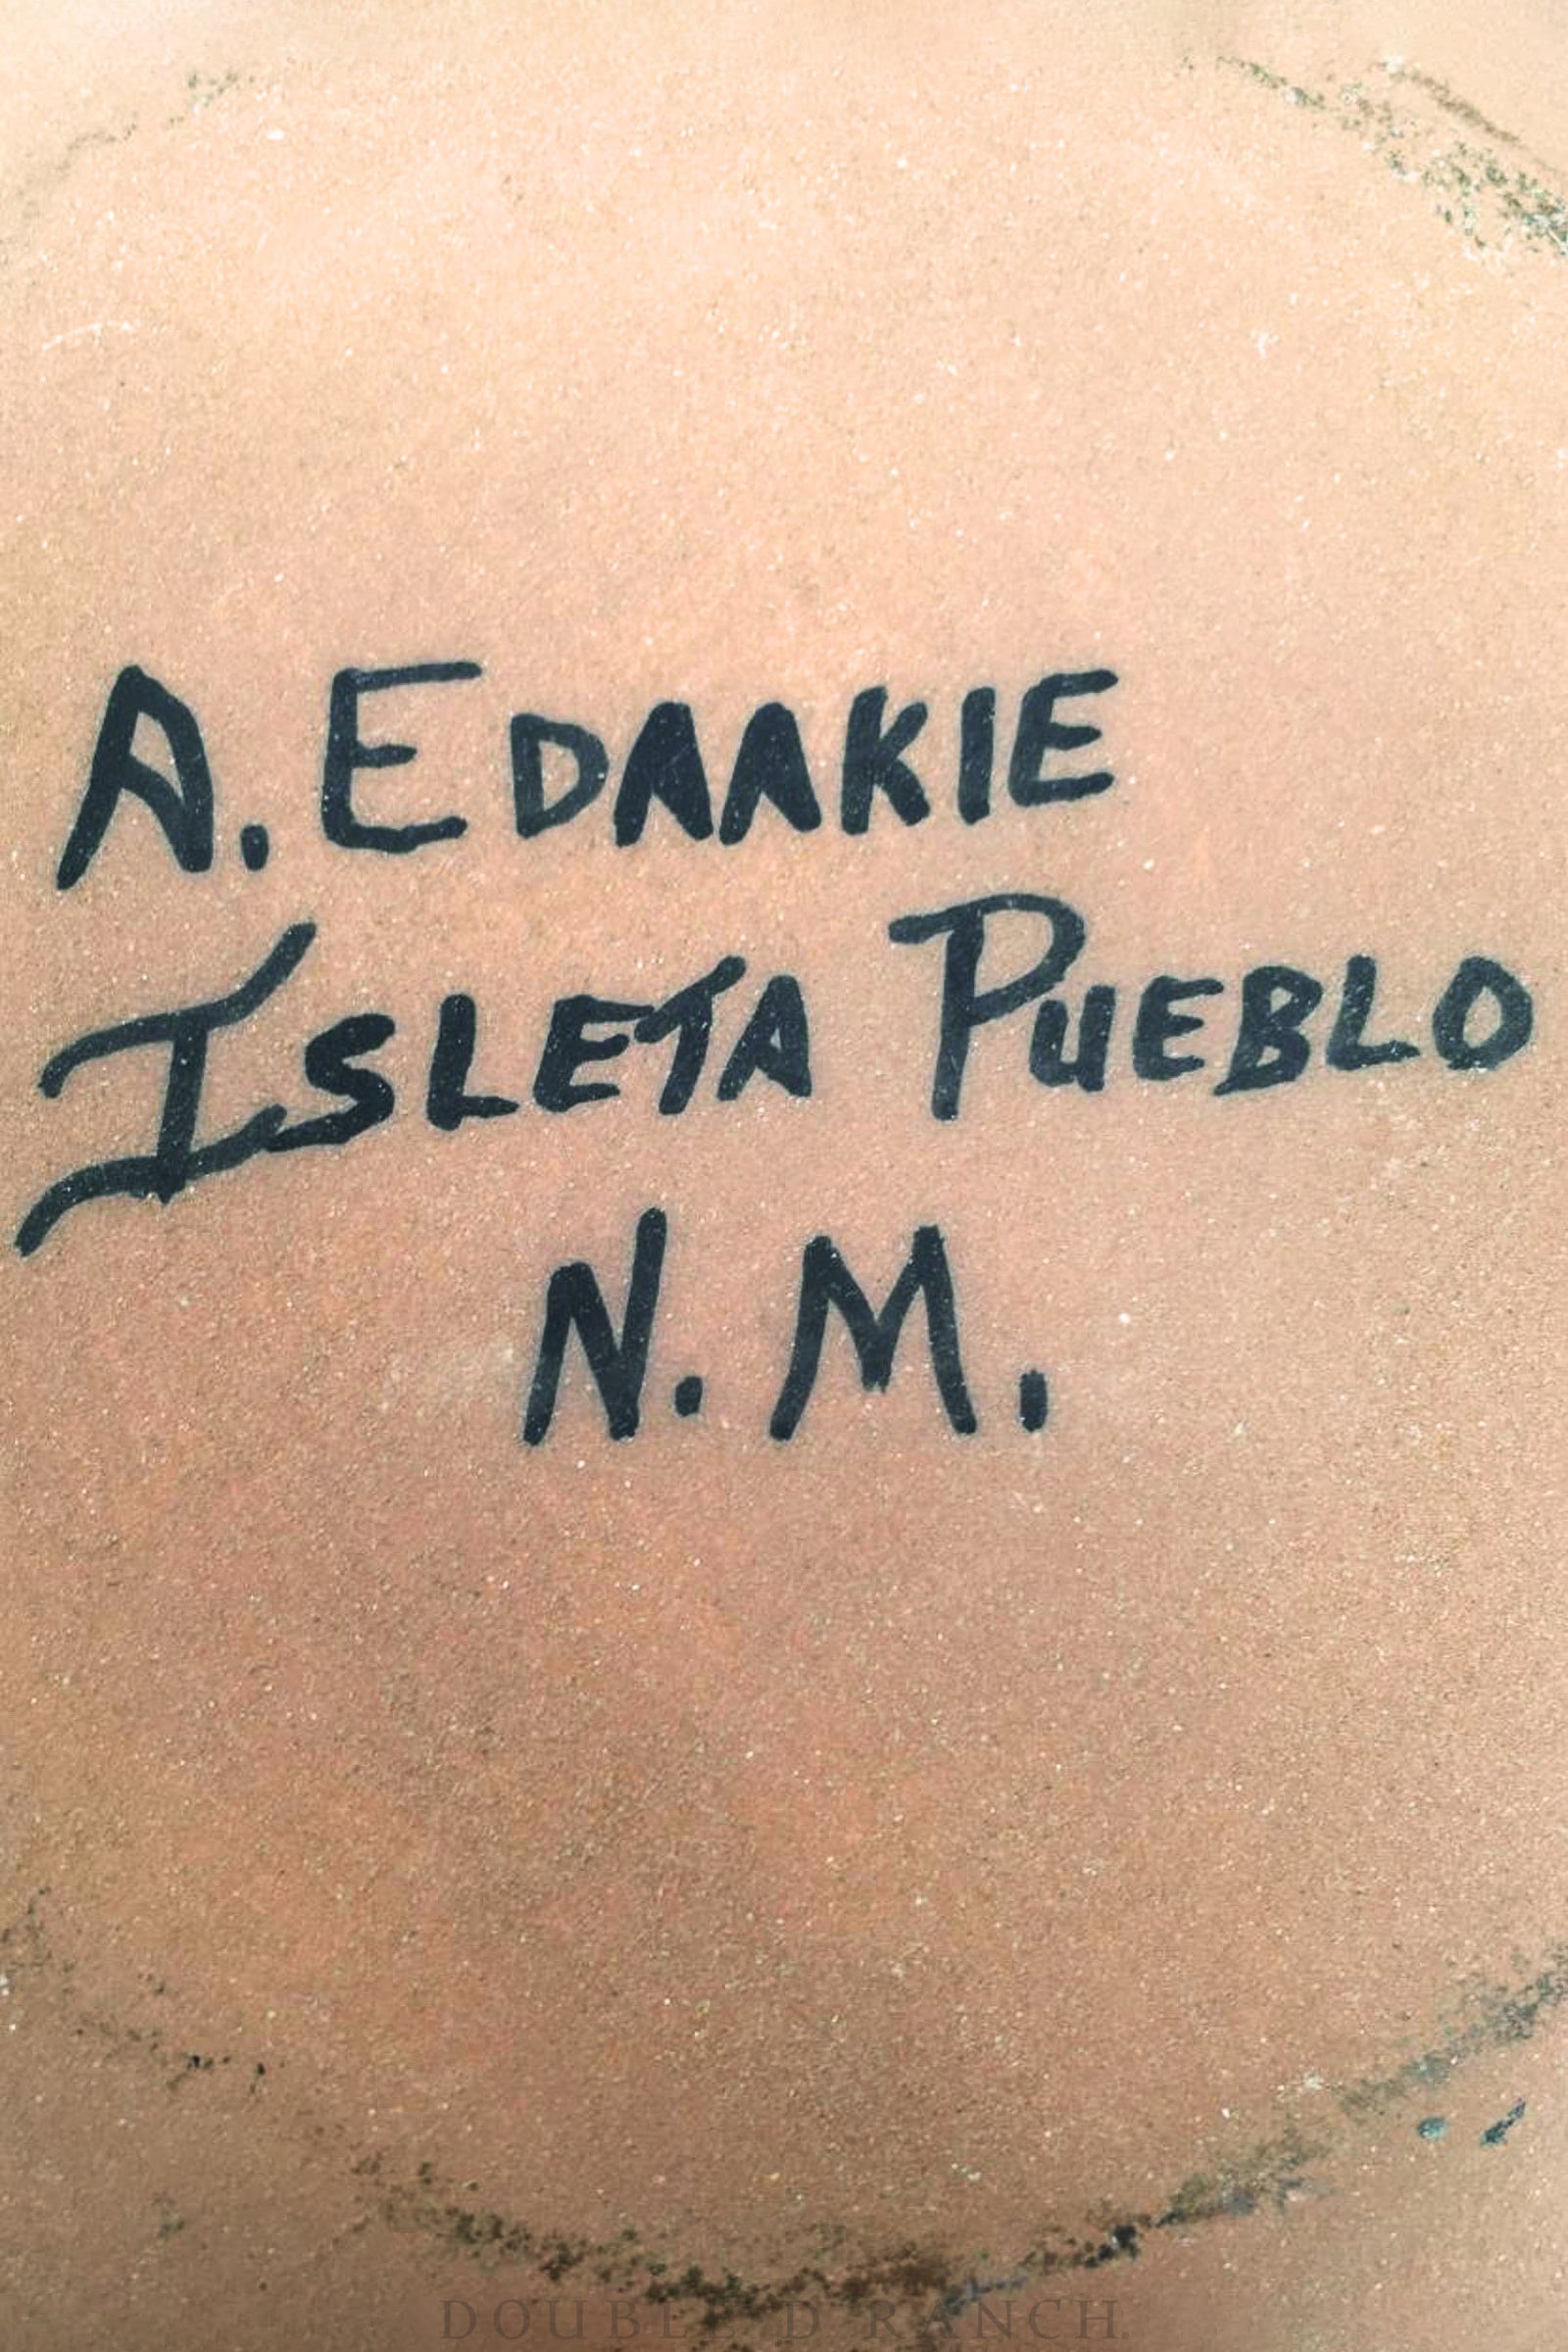 A. EDAAKIE
ISLETA PUEBLO
N. M.
DOUBLE D RANCH